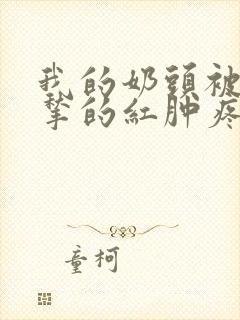 我的奶頭被
摯的紅腫疼
童柯